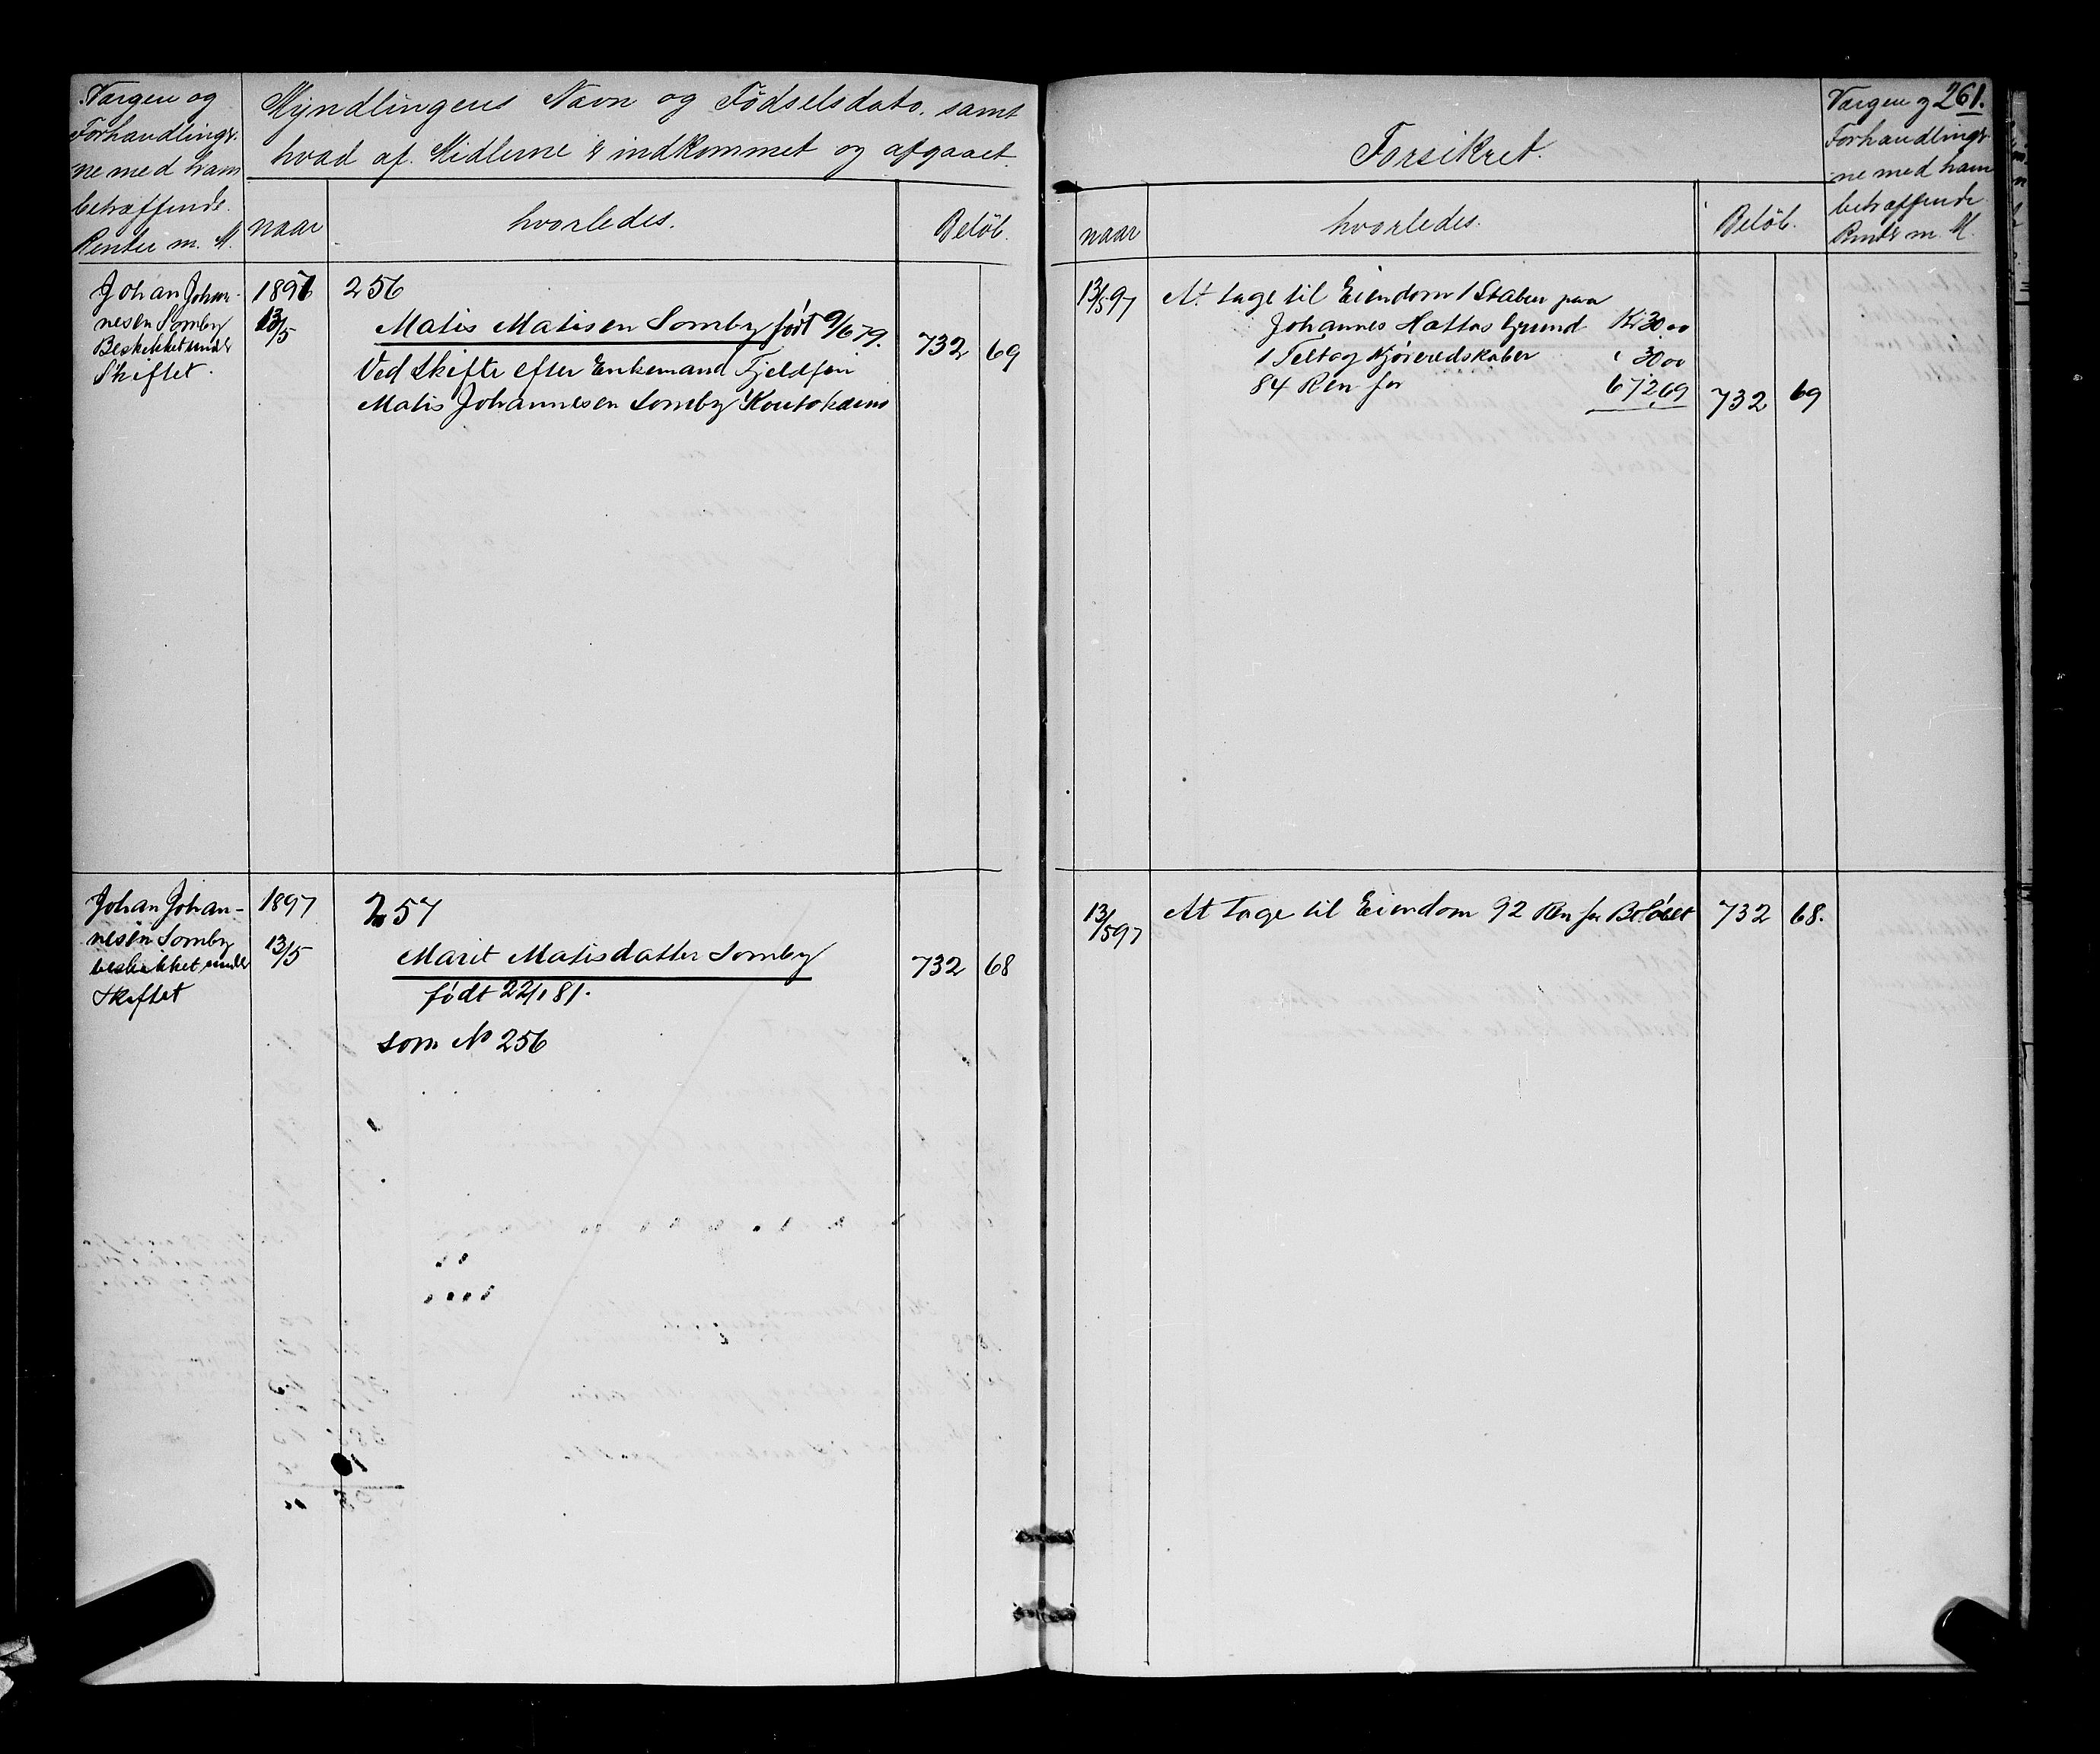 Værgen og
Forhandlinger-
ne med ham
betræffende
Renter m. M.
Myndlingens Navn og Födselsdato. samt
hvad af Midlerne er indkommet og afgaaet.
naar
hvorledes.
Beløb.
Johan Johan-
nesen Somby
Beskikket under
Skiftet.
1897
13/5
256
Matis Matisen Somby født 9/6 79.
Ved Skifte efter Enkemand Fjeldfin
Matis Johannesen Somby Koutokæino
732 69
Johan Johan-
nesen Somby
beskikket under
Skiftet
1897
13/5
257
Marit Matisdatter Somby
født 22/1 81.
som No 256
732 68
Forsikret.
261.
Værgen og
Forhandlinger-
ne med ham
betræffende
Renter m. M.
naar
hvorledes.
Beløb.
13/5 97
At tage til Eiendom 1 Stabur paa
Johannes Hættas Grund Kr 30.00
1 Telt og Kjøreredskaber " 30 00
84 Ren for 672,69
732 69
13/5 97
At tage til Eiendom 92 Ren for Beløbet
732 68.